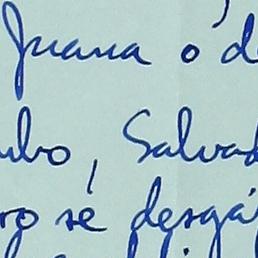 Juana o d
mbo, Salvad
ro sé desgá